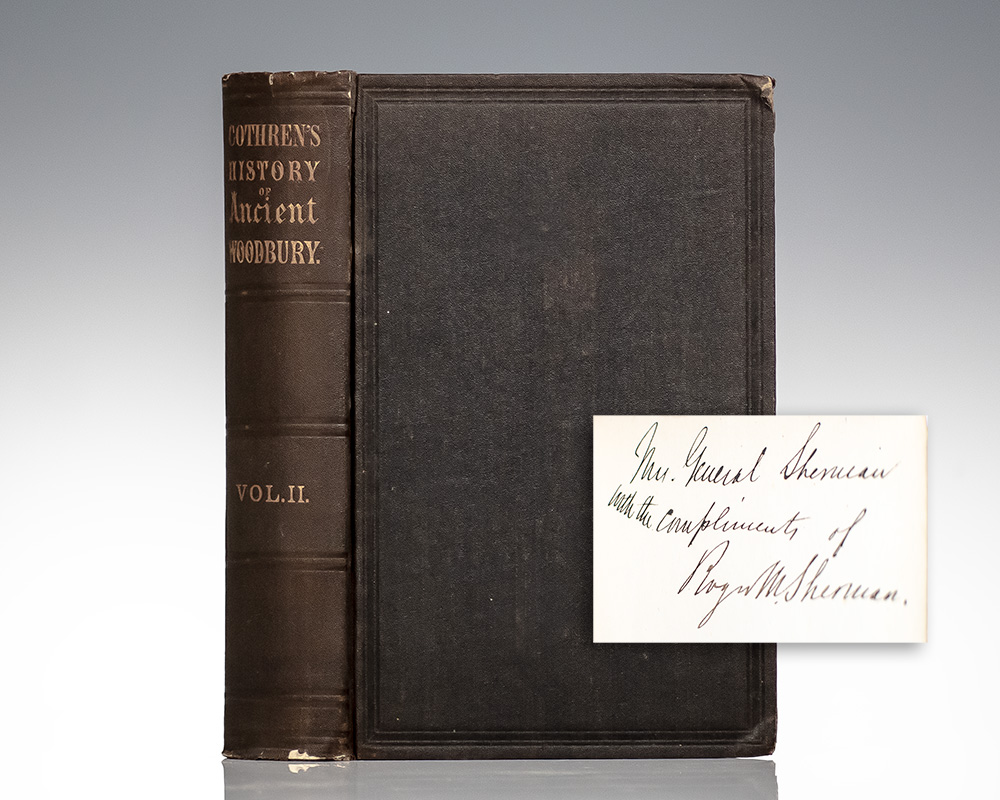 COTHREN'S
HISTORY
OF
Ancient
WOODBURY.
VOL.II.
Mrs. General Sherman
with the compliments of
Roger M. Sherman.